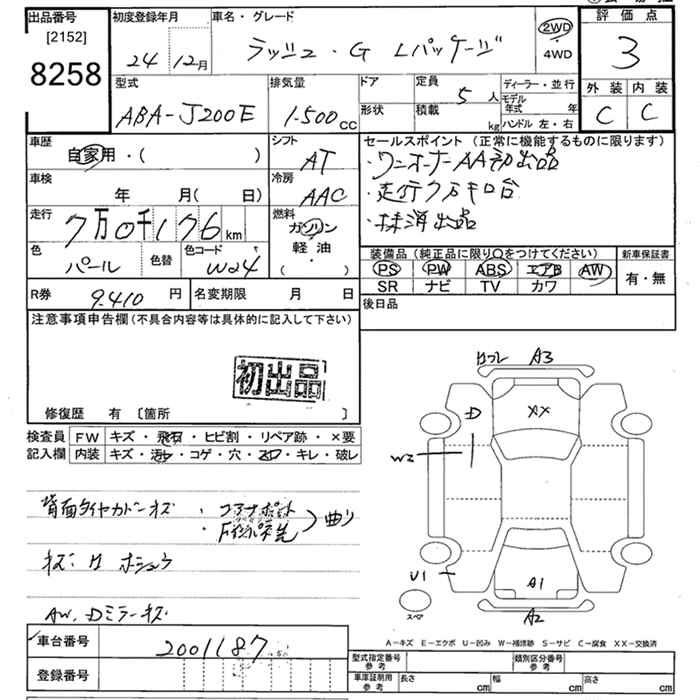 出品番号 [2152] 8258
初度登録年月 24年 12月
車名・グレード
ラッシュ・G Lパッケージ
2WD・4WD
評価点 3
外装 C 内装 C
型式 ABA-J200E
排気量 1.500cc
ドア形状
定員 5人
積載 kg
ディーラー・並行
モデル年式 年
ハンドル 左・右
車歴 自家用・( )
シフト AT
セールスポイント(正常に機能するものに限ります)
・ワンオーナーAA初出品
・走行7万キロ台
・抹消出品
車検 年 月( 日)
冷房 AAC
走行 7万0千176km
燃料 ガソリン 軽・油 ( )
色 パール 色替
色コード W24
装備品(純正品に限り○をつけてください)
PS PW ABS エアB AW
SR ナビ TV カワ
新車保証書 有・無
R券 9.410円
名変期限 月 日
後日品
注意事項申告欄(不具合内容等は具体的に記入して下さい)
初出品
修復歴 有 〔箇所 〕
検査員記入欄
FW キズ・飛石・ヒビ割・リペア跡・×要
内装 キズ・汚レ・コゲ・穴・スレ・キレ・破レ
背面タイヤカバーキズ
曲り
キズ:H ホシュウ
AW,Dミラーキズ
A3
XX
D
W2
U1
A1
A2
スペア
A-キズ E-エクボ U-凹み W-補修跡 S-サビ C-腐食 XX-交換済
車台番号 2001187
登録番号
型式指定番号 参考
類別区分番号 参考
車庫証明用 参考
長さ cm 幅 cm 高さ cm